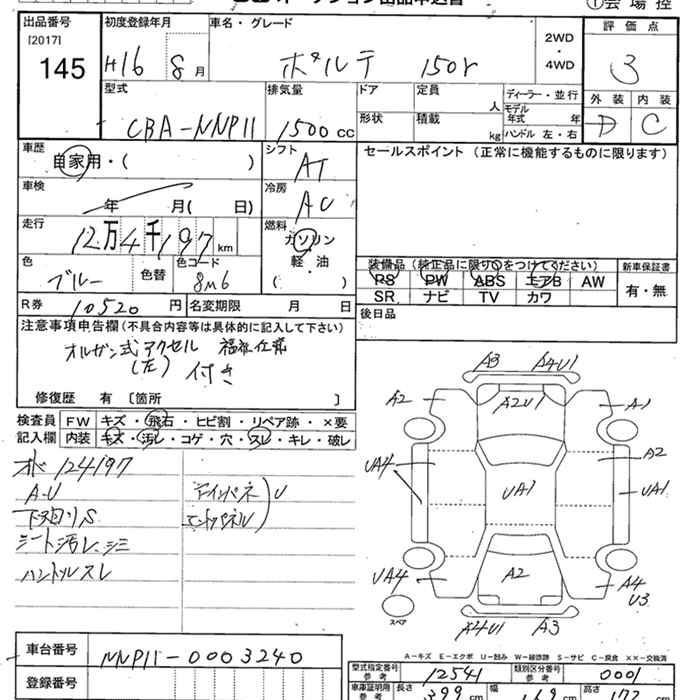 オークション出品申込書
①会場控
出品番号 [2017] 145
初度登録年月 H16 8月
車名・グレード ポルテ 150r
2WD・4WD
評価点 3
外装 D 内装 C
型式 CBA-NNP11
排気量 1500cc
ドア 形状
定員 人 積載 kg
ディーラー・並行
モデル年式 年
ハンドル 左・右
車歴 自家用・( )
シフト AT
セールスポイント (正常に機能するものに限ります)
車検 年 月( 日)
冷房 AC
走行 12万4千197km
燃料 ガソリン 軽・油 ( )
色 ブルー 色替
色コード 8M6
装備品 (純正品に限り○をつけてください)
PS PW ABS エアB AW
SR ナビ TV カワ
新車保証書 有・無
R券 10520円 名変期限 月 日
後日品
注意事項申告欄(不具合内容等は具体的に記入して下さい)
オルガン式アクセル 福祉仕様
(左) 付き
修復歴 有 [箇所 ]
検査員記入欄
FW キズ・飛石・ヒビ割・リペア跡・×要
内装 キズ・汚レ・コゲ・穴・スレ・キレ・破レ
124197
A-U
下回りS
シート汚レ、シミ
ハンドルスレ
U
A3 A4U1
A2 A2U1 A1
UA4 UA1 A2 UA1
UA4 A2 A4 U3
A4U1 A3
スペア
A-キズ E-エクボ U-凹み W-補修跡 S-サビ C-腐食 ××-交換済
車台番号 NNP11-0003240
登録番号
型式指定番号 参考 12541
類別区分番号 参考 0001
車庫証明用 参考 長さ 399cm 幅 169cm 高さ 172cm